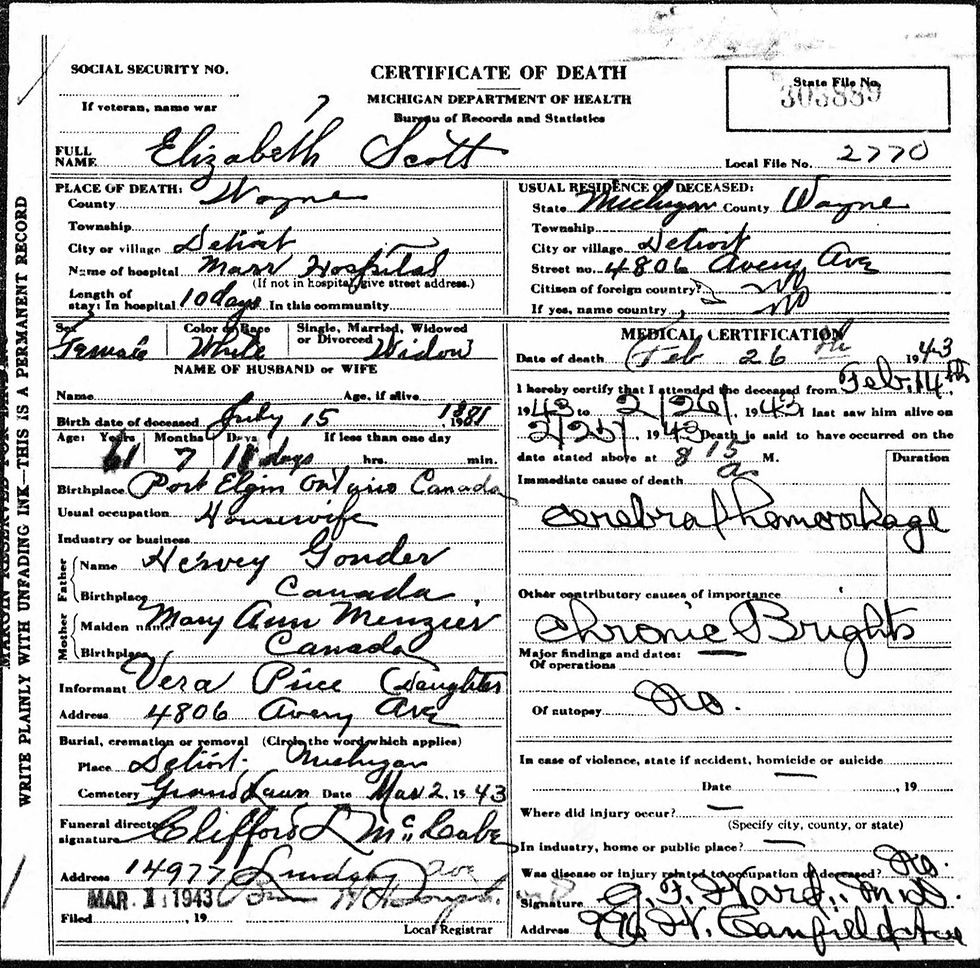 SOCIAL SECURITY NO.
If veteran, name war
CERTIFICATE OF DEATH
MICHIGAN DEPARTMENT OF HEALTH
Bureau of Records and Statistics
State File No.
303889
FULL NAME Elizabeth Scott
Local File No. 2770
PLACE OF DEATH:
County Wayne
Township
City or village Detroit
Name of hospital Marr Hospital
(If not in hospital, give street address.)
Length of stay: In hospital 10 days In this community
USUAL RESIDENCE OF DECEASED:
State Michigan County Wayne
Township
City or village Detroit
Street no. 4806 Avery Ave
Citizen of foreign country? No
If yes, name country No
Sex Female Color or Race White Single, Married, Widowed or Divorced Widow
NAME OF HUSBAND or WIFE
Name Age, if alive
Birth date of deceased July 15 1881
Age: Years Months Days If less than one day
61 7 11 days hrs. min.
Birthplace Port Elgin Ontario Canada
Usual occupation Housewife
Industry or business
Father
Name Hervey Gonder
Birthplace Canada
Mother
Maiden name Mary Ann Menzier
Birthplace Canada
Informant Vera Price (Daughter
Address 4806 Avery Ave
Burial, cremation or removal (Circle the word which applies)
Place Detroit Michigan
Cemetery Grand Lawn Date Mar 2, 19 43
Funeral director signature Clifford L McCabe
Address 14977
MAR 1 1943
Filed 19
Local Registrar
MEDICAL CERTIFICATION
Date of death Feb 26 th 1943
I hereby certify that I attended the deceased from Feb. 14th,
1943 to 2/26/, 1943 I last saw him alive on
2/25/, 1943 Death is said to have occurred on the
date stated above at 8 15 a M.
Duration
Immediate cause of death
Cerebral hemorrhage
Other contributory causes of importance
Chronic Brights
Major findings and dates:
Of operations
Of autopsy No.
In case of violence, state if accident, homicide or suicide
Date , 19
Where did injury occur?
(Specify city, county, or state)
In industry, home or public place?
Was disease or injury related to occupation of deceased? No.
Signature M.D.
Address 996 W. Canfield Ave
WRITE PLAINLY WITH UNFADING INK—THIS IS A PERMANENT RECORD